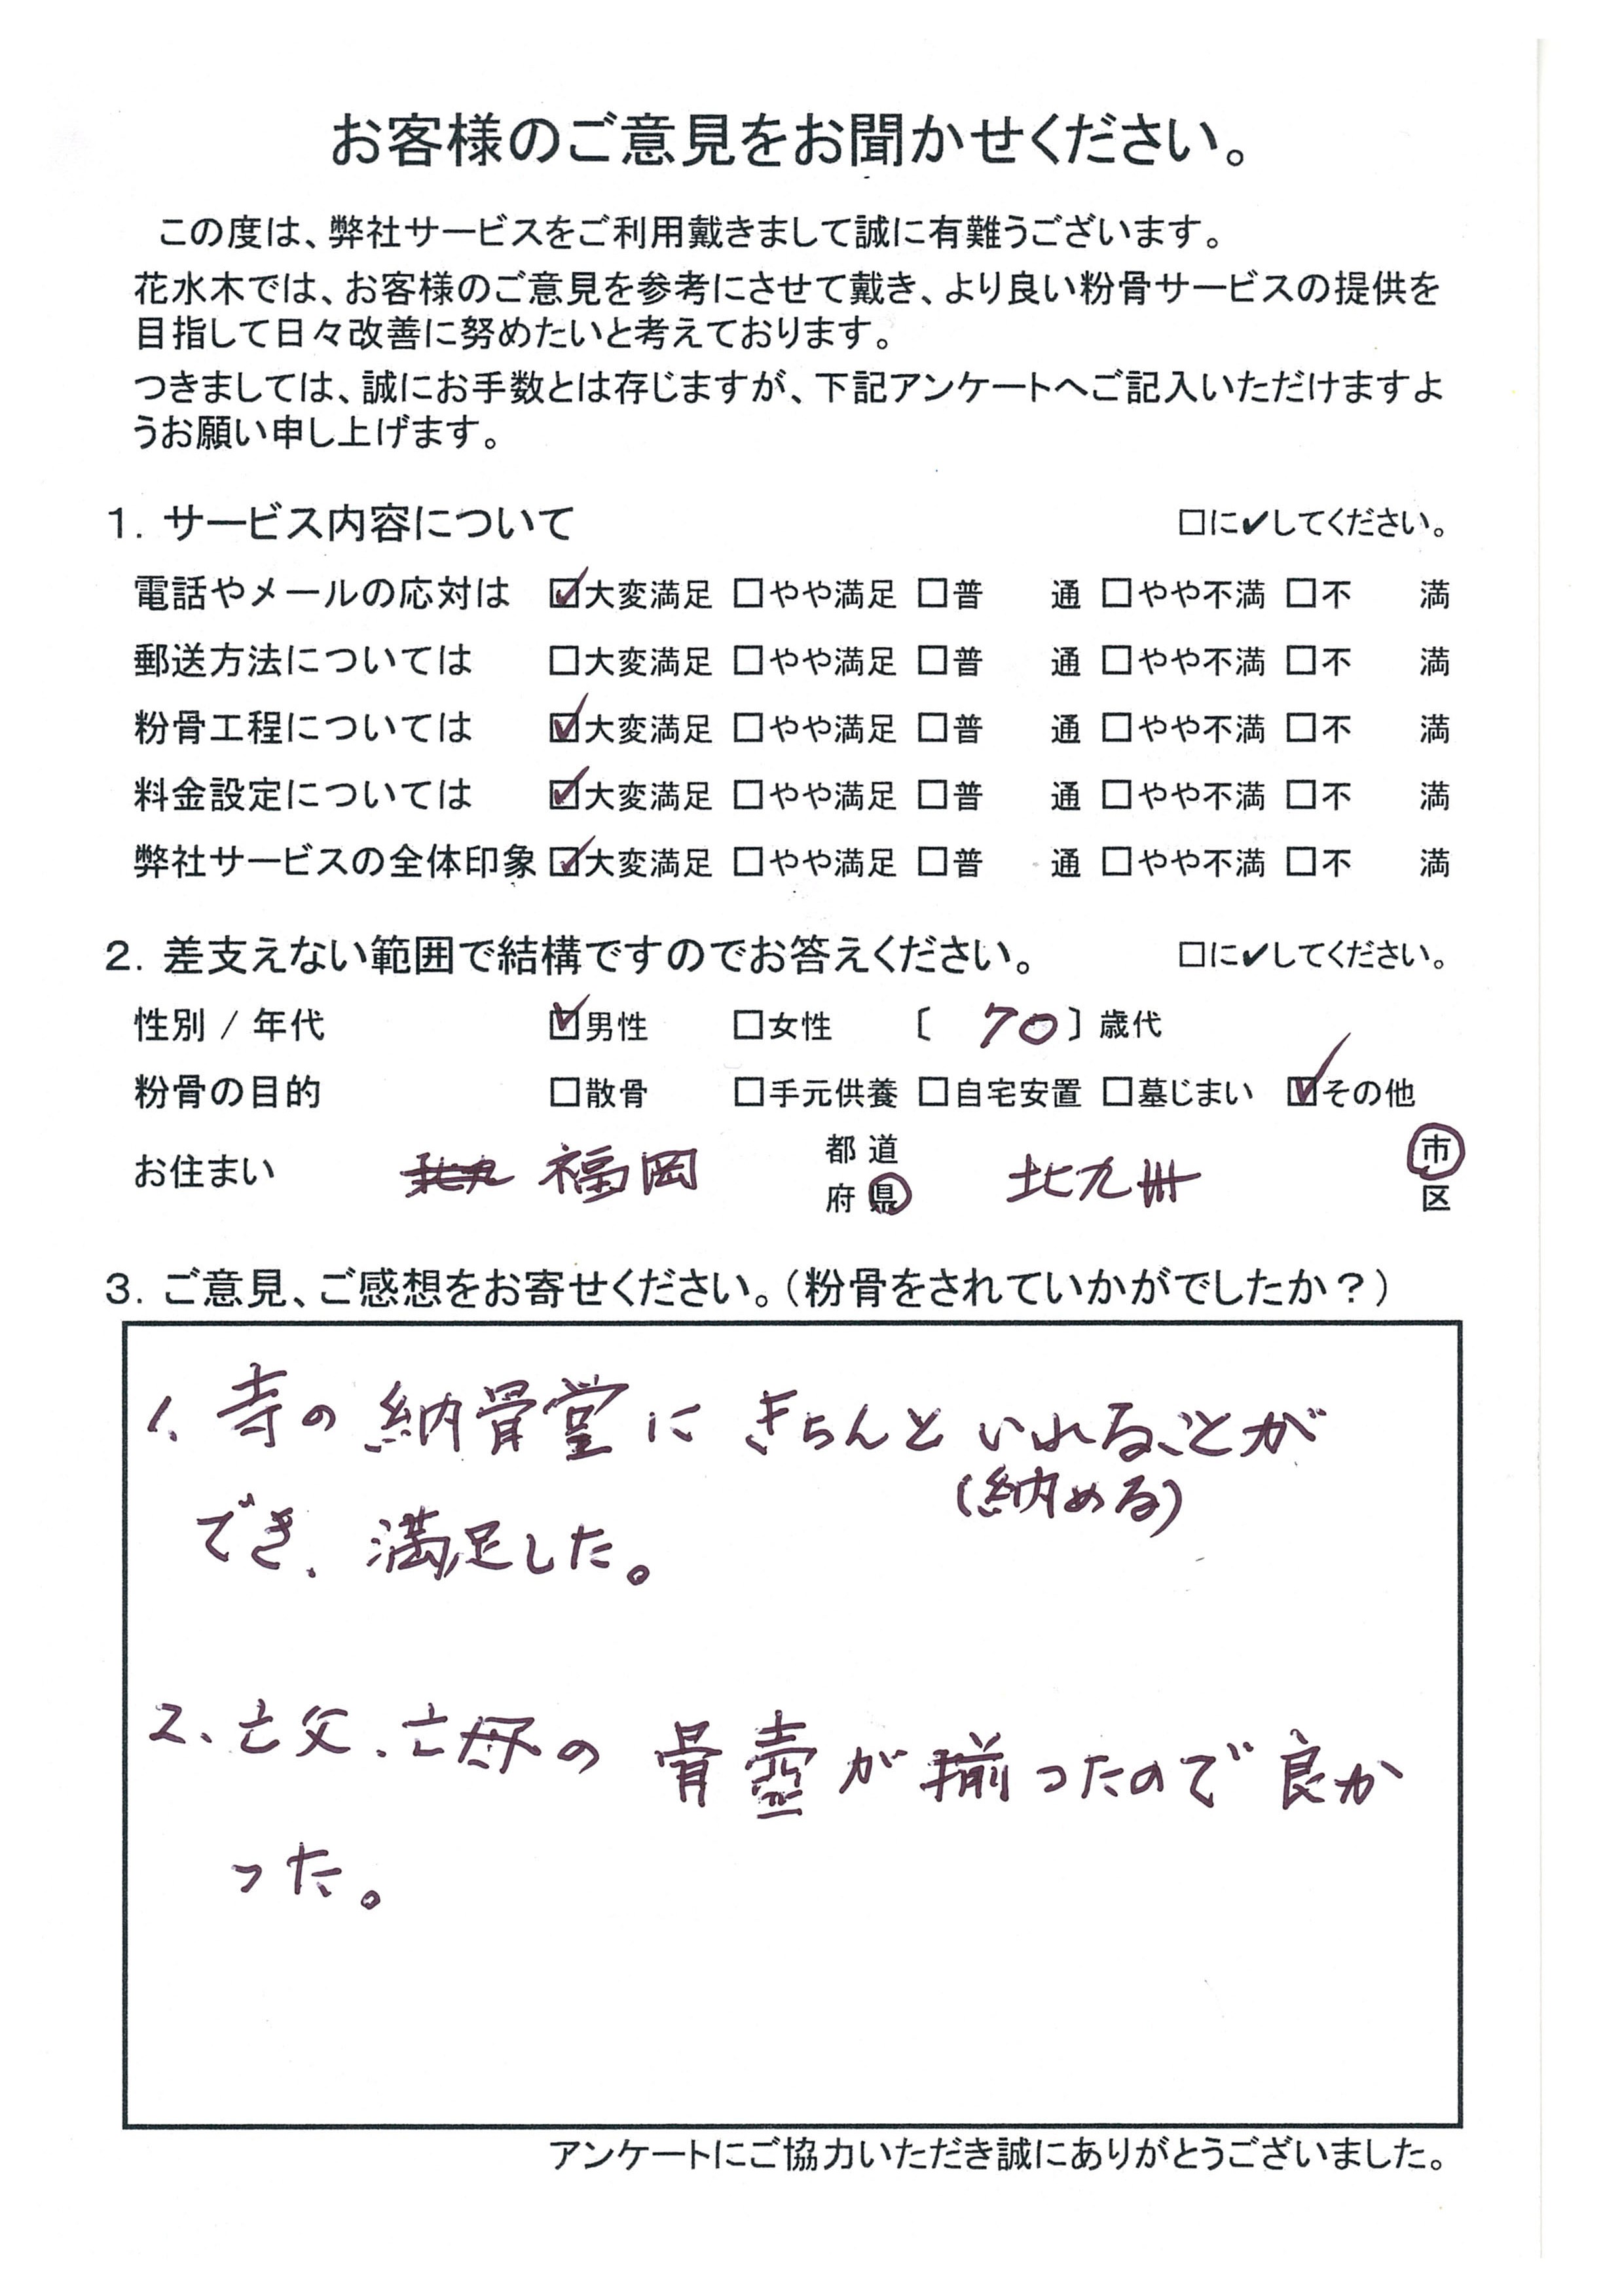 お客様のご意見をお聞かせください。
この度は、弊社サービスをご利用戴きまして誠に有難うございます。
花水木では、お客様のご意見を参考にさせて戴き、より良い粉骨サービスの提供を
目指して日々改善に努めたいと考えております。
つきましては、誠にお手数とは存じますが、下記アンケートへご記入いただけますよ
うお願い申し上げます。
1. サービス内容について □に✔してください。
電話やメールの応対は ☑大変満足 □やや満足 □普 通 □やや不満 □不 満
郵送方法については □大変満足 □やや満足 □普 通 □やや不満 □不 満
粉骨工程については ☑大変満足 □やや満足 □普 通 □やや不満 □不 満
料金設定については ☑大変満足 □やや満足 □普 通 □やや不満 □不 満
弊社サービスの全体印象 ☑大変満足 □やや満足 □普 通 □やや不満 □不 満
2. 差支えない範囲で結構ですのでお答えください。 □に✔してください。
性別 / 年代 ☑男性 □女性 〔 70 〕歳代
粉骨の目的 □散骨 □手元供養 □自宅安置 □墓じまい ☑その他
お住まい 福岡 都 道 府 県 北九州 市 区
3. ご意見、ご感想をお寄せください。（粉骨をされていかがでしたか？）
1. 寺の納骨堂にきちんといれることが
(納める)
でき、満足した。
2、亡父、亡母の骨壺が揃ったので良か
った。
アンケートにご協力いただき誠にありがとうございました。